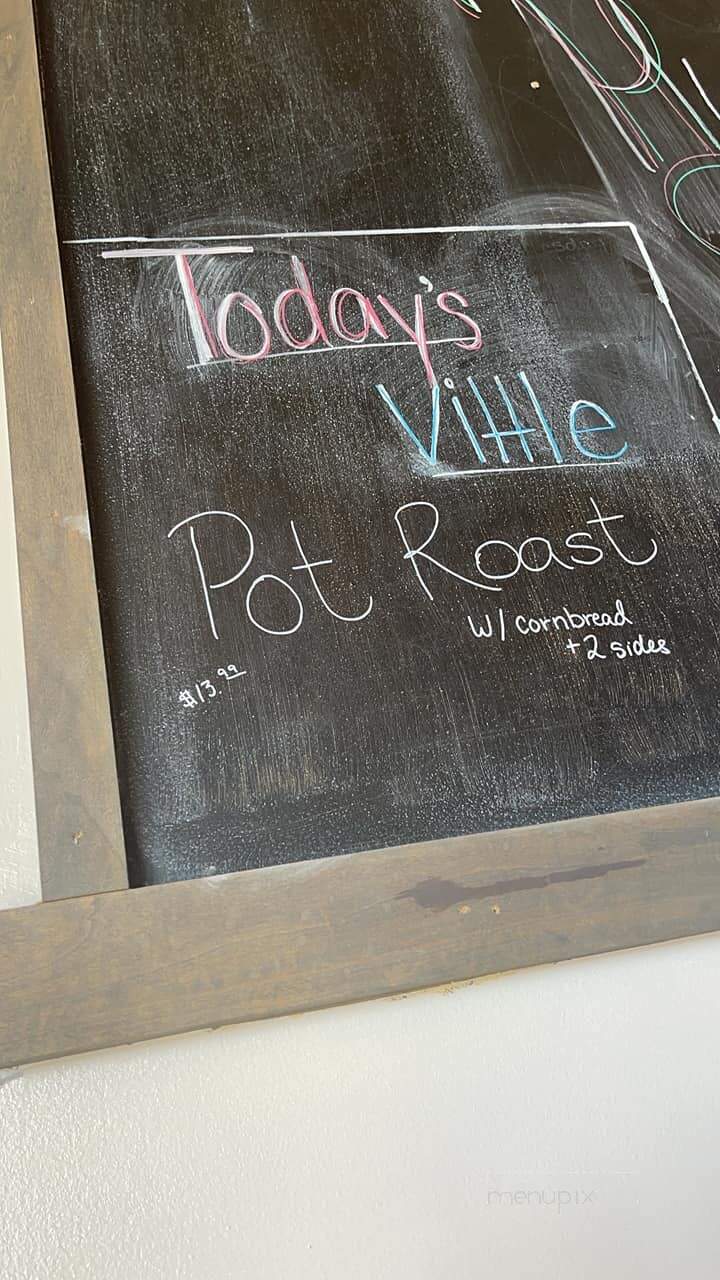 Today's
Vittle
Pot Roast
W/ cornbread
+2 sides
$13.99
menupix